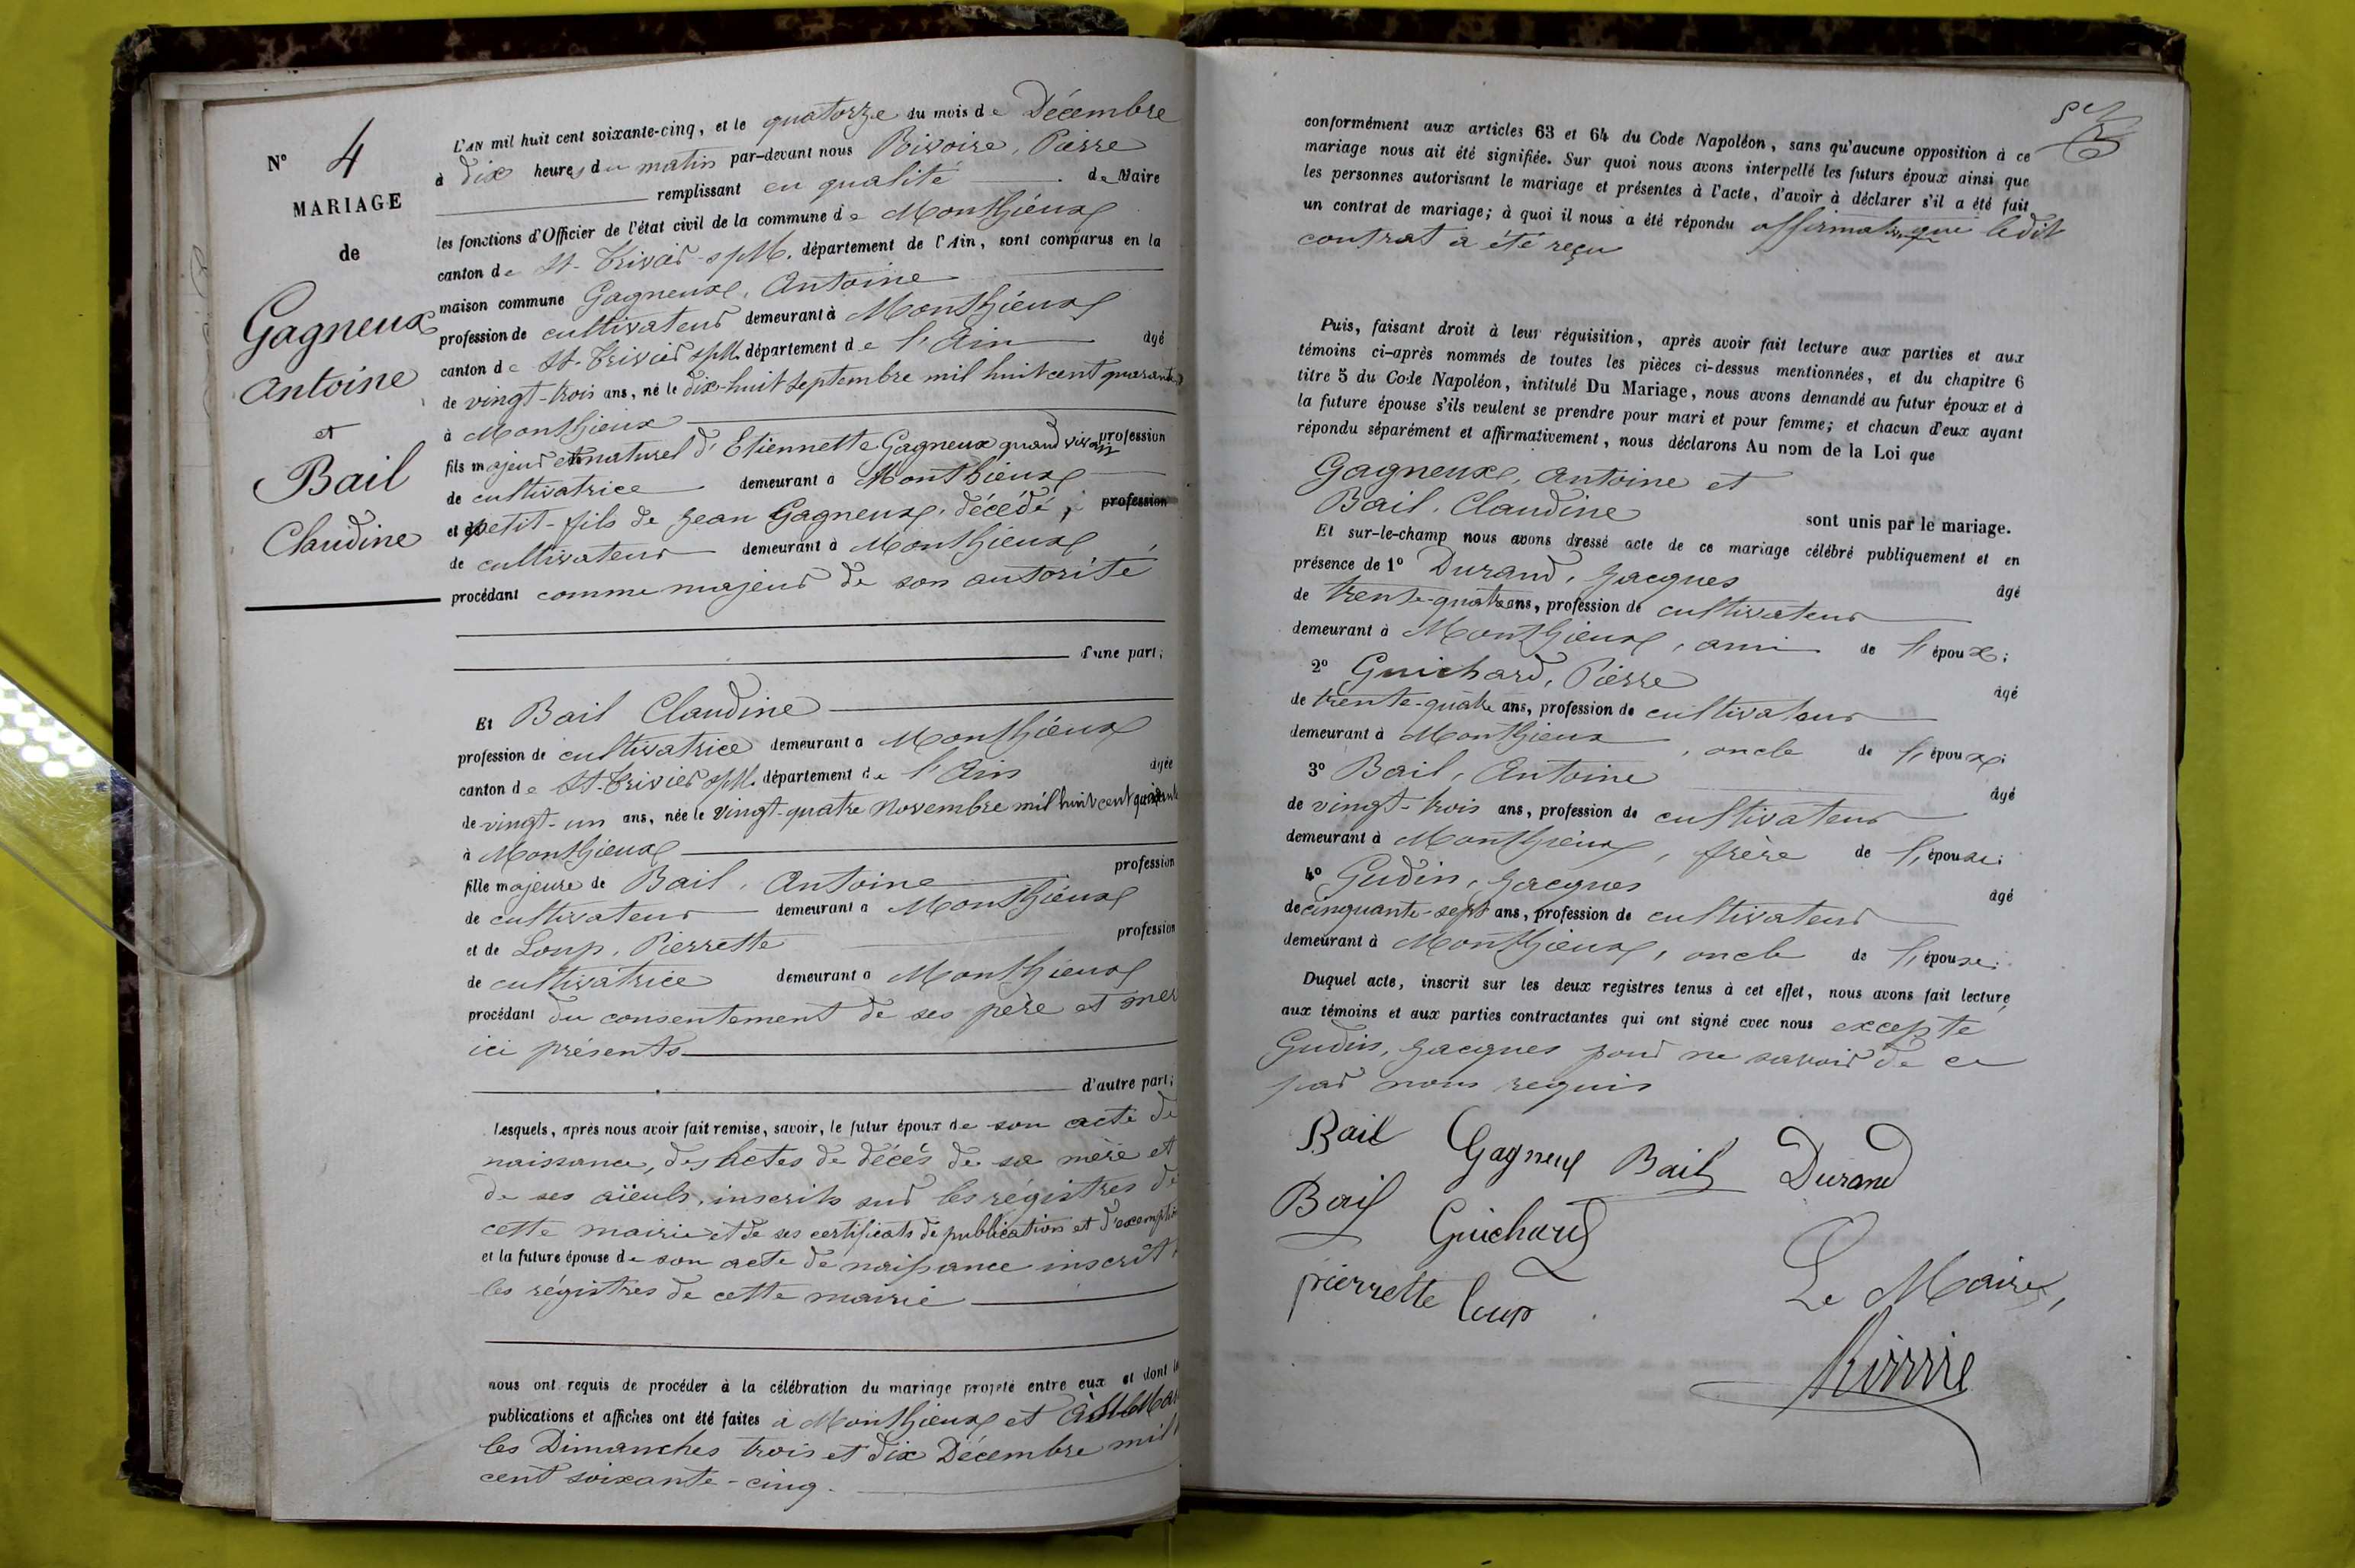 N° 4
MARIAGE
de
Gagneux
Antoine
et
Bail
Claudine
L'AN mil huit cent soixante-cinq, et le quatorze du mois de Décembre
à dix heures du matin par-devant nous Rivoire, Pierre
remplissant en qualité de Maire
les fonctions d'Officier de l'état civil de la commune de Monthieux
canton de St-Trivier-s/M. département de l'Ain, sont comparus en la
maison commune Gagneux, Antoine
profession de cultivateur demeurant à Monthieux
canton de St-Trivier s/M. département de l'Ain âgé
de vingt-trois ans, né le dix-huit septembre mil huit cent quarante
à Monthieux
fils majeur et naturel d'Etiennette Gagneux quand vivait profession
de cultivatrice demeurant à Monthieux
et petit-fils de Jean Gagneux, décédé, profession
de cultivateur demeurant à Monthieux
procédant comme majeur de son autorité
d'une part;
Et Bail Claudine
profession de cultivatrice demeurant à Monthieux
canton de St-Trivier s/M. département de l'Ain âgée
de vingt-un ans, née le vingt-quatre Novembre mil huit cent quarante
à Monthieux
fille majeure de Bail, Antoine profession
de cultivateur demeurant à Monthieux
et de Loup, Pierrette profession
de cultivatrice demeurant à Monthieux
procédant du consentement de ses père et mer
ici présents
d'autre part;
Lesquels, après nous avoir fait remise, savoir, le futur époux de son acte de
naissance, des actes de décès de sa mère et
de ses aïeuls, inscrits sur les régistres de
cette mairie et de ses certificats de publication et d'exemption
et la future épouse de son acte de naissance inscrit
les régistres de cette mairie
nous ont requis de procéder à la célébration du mariage projeté entre eux et dont
publications et affiches ont été faites à Monthieux et à
les Dimanches trois et dix Décembre mil
cent soixante-cinq.
conformément aux articles 63 et 64 du Code Napoléon, sans qu'aucune opposition à ce
mariage nous ait été signifiée. Sur quoi nous avons interpellé les futurs époux ainsi que
les personnes autorisant le mariage et présentes à l'acte, d'avoir à déclarer s'il a été fait
un contrat de mariage; à quoi il nous a été répondu que ledit
contrat a été reçu
Puis, faisant droit à leur réquisition, après avoir fait lecture aux parties et aux
témoins ci-après nommés de toutes les pièces ci-dessus mentionnées, et du chapitre 6
titre 5 du Code Napoléon, intitulé Du Mariage, nous avons demandé au futur époux et à
la future épouse s'ils veulent se prendre pour mari et pour femme; et chacun d'eux ayant
répondu séparément et affirmativement, nous déclarons Au nom de la Loi que
Gagneux, Antoine et
Bail, Claudine sont unis par le mariage.
Et sur-le-champ nous avons dressé acte de ce mariage célébré publiquement et en
présence de 1° Durand, Jacques âgé
de trente-quatre ans, profession de cultivateur
demeurant à Monthieux, ami de l'époux;
2° Guichard, Pierre âgé
de trente-quatre ans, profession de cultivateur
demeurant à Monthieux, oncle de l'époux;
3° Bail, Antoine âgé
de vingt-trois ans, profession de cultivateur
demeurant à Monthieux, frère de l'épouse;
4° Gudin, Jacques âgé
de cinquante-sept ans, profession de cultivateur
demeurant à Monthieux, oncle de l'épouse;
Duquel acte, inscrit sur les deux registres tenus à cet effet, nous avons fait lecture
aux témoins et aux parties contractantes qui ont signé avec nous excepté
Gudin, Jacques pour ne savoir de ce
par nous requis
Bail Gagneux Bail Durand
Bail Guichard
pierrette loup
Le Maire,
Rivoire